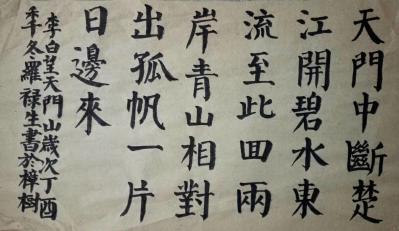 天門中斷楚
江開碧水東
流至此回兩
岸青山相對
出孤帆一片
日邊來
李白望天門山歲次丁酉
季冬羅祿生書於樟樹